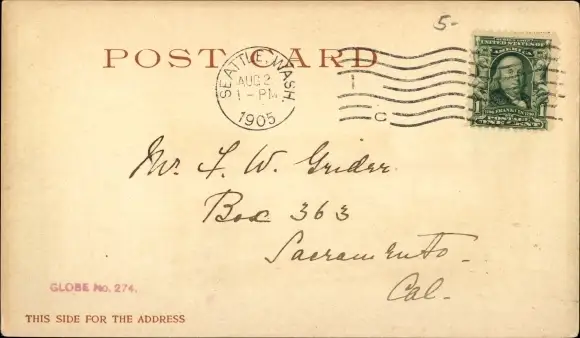 5-
POST CARD
SEATTLE, WASH.
AUG 2
1 - PM
1905
1
C
UNITED STATES OF AMERICA
POSTAGE
1 ONE CENT 1
Mr. F. W. Grider
Box 363
Sacramento.
Cal.
GLOBE No. 274.
THIS SIDE FOR THE ADDRESS